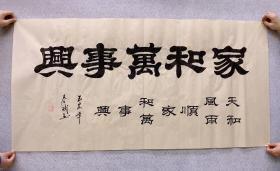 家和萬事興
天和
風雨
順
家
和萬
事
興